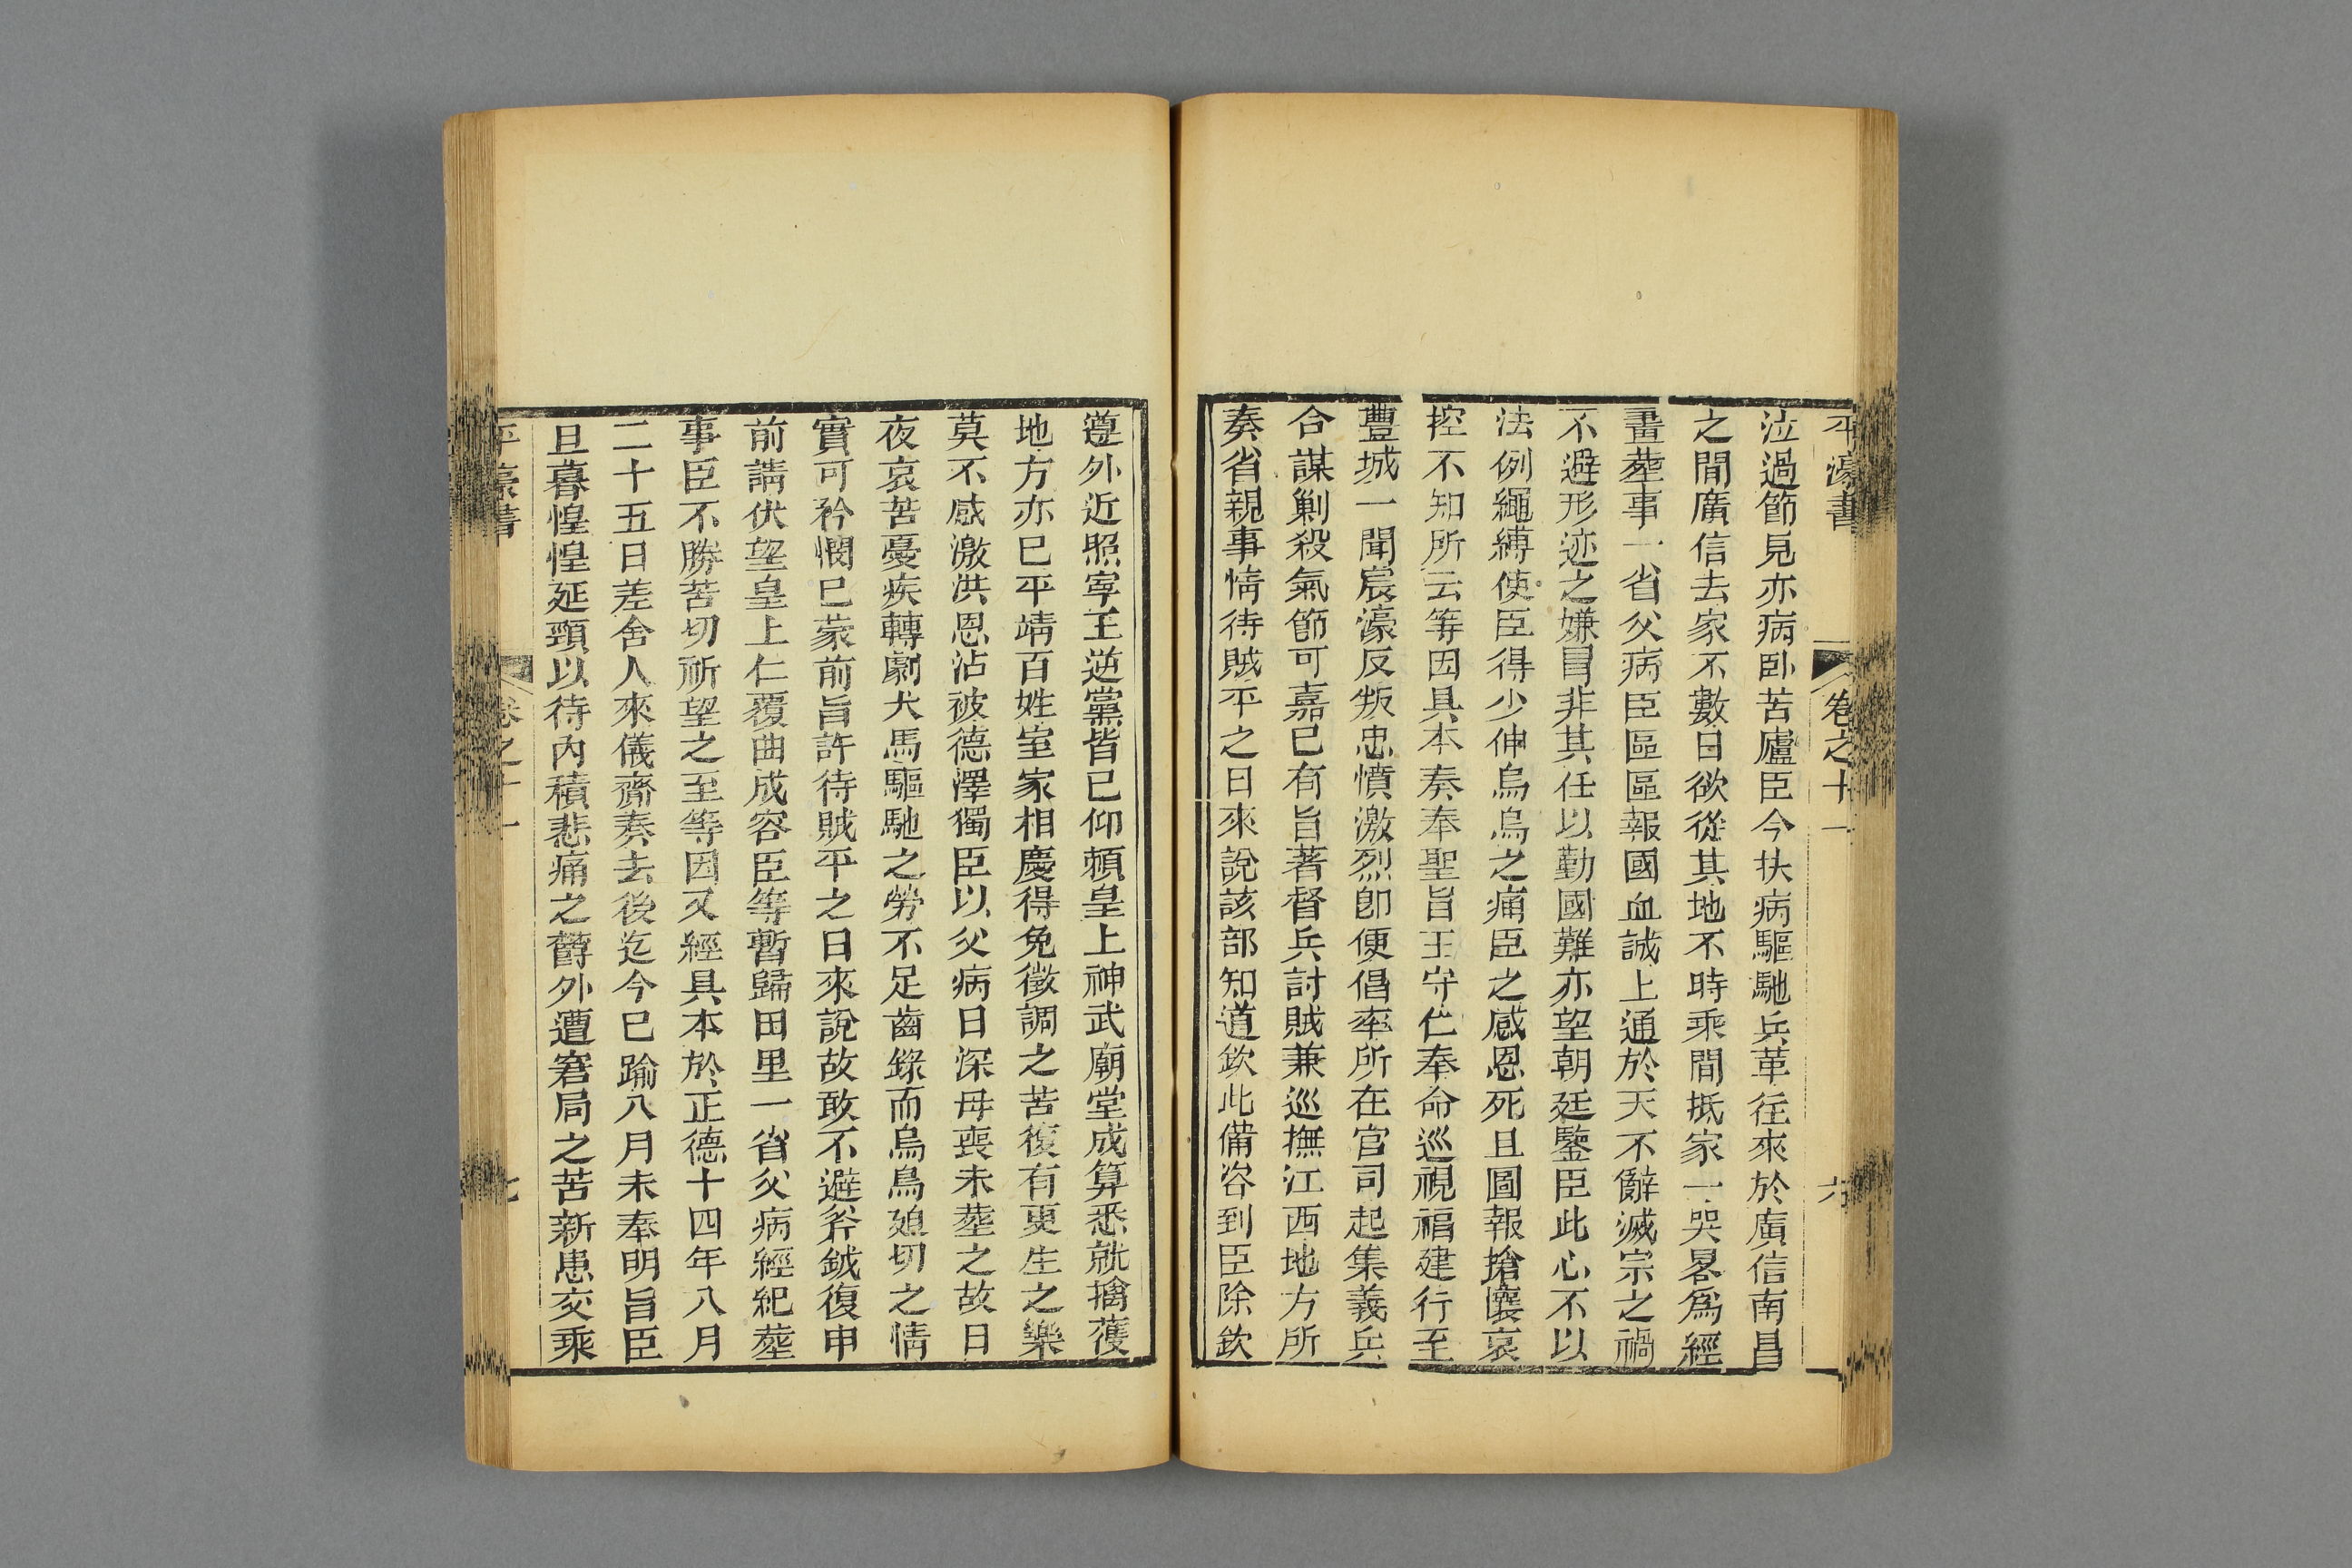 平濠書 卷之十一 六
泣過節見亦病臥苦廬臣今扶病驅馳兵革往來於廣信南昌
之間廣信去家不數日欲從其地不時乘間抵家一哭畧爲經
畫葬事一省父病臣區區報國血誠上通於天不辭滅宗之禍
不避形迹之嫌冒非其任以勤國難亦望朝廷鑒臣此心不以
法例繩縛使臣得少伸烏鳥之痛臣之感恩死且圖報搶懷哀
控不知所云等因具本奏奉聖旨王守仁奉命巡視福建行至
豐城一聞宸濠反叛忠憤激烈卽便倡率所在官司起集義兵
合謀剿殺氣節可嘉已有旨著督兵討賊兼巡撫江西地方所
奏省親事情待賊平之日來說該部知道欽此備咨到臣除欽
遵外近照寧王逆黨皆已仰賴皇上神武廟堂成算悉就擒獲
地方亦巳平靖百姓室家相慶得免徵調之苦復有更生之樂
莫不感激洪恩沾被德澤獨臣以父病日深母喪未葬之故日
夜哀苦憂疾轉劇犬馬驅馳之勞不足齒錄而烏鳥廹切之情
實可矜憫巳蒙前旨許待賊平之日來說故敢不避斧鉞復申
前請伏望皇上仁覆曲成容臣等暫歸田里一省父病經紀葬
事臣不勝苦切祈望之至等因又經具本於正德十四年八月
二十五日差舍人來儀齎奏去後迄今巳踰八月未奉明旨臣
旦暮惶惶延頸以待內積悲痛之鬱外遭窘局之苦新患交乘
平濠書 卷之十一 七